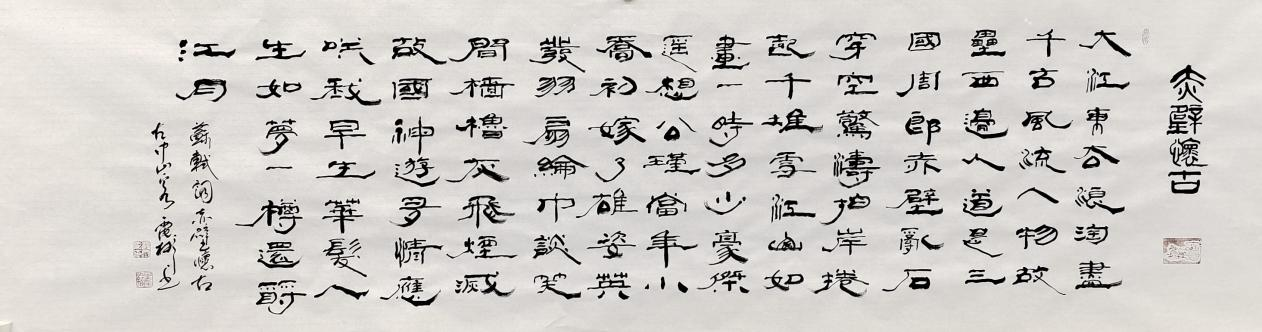 赤壁懷古
大江東去浪淘盡
千古風流人物故
壘西邊人道是三
國周郎赤壁亂石
穿空驚濤拍岸捲
起千堆雪江山如
畫一時多少豪傑
遥想公瑾當年小
喬初嫁了雄姿英
發羽扇綸巾談笑
間檣櫓灰飛煙滅
故國神遊多情應
笑我早生華髮人
生如夢一樽還酹
江月
蘇軾詞赤壁懷古
古中山